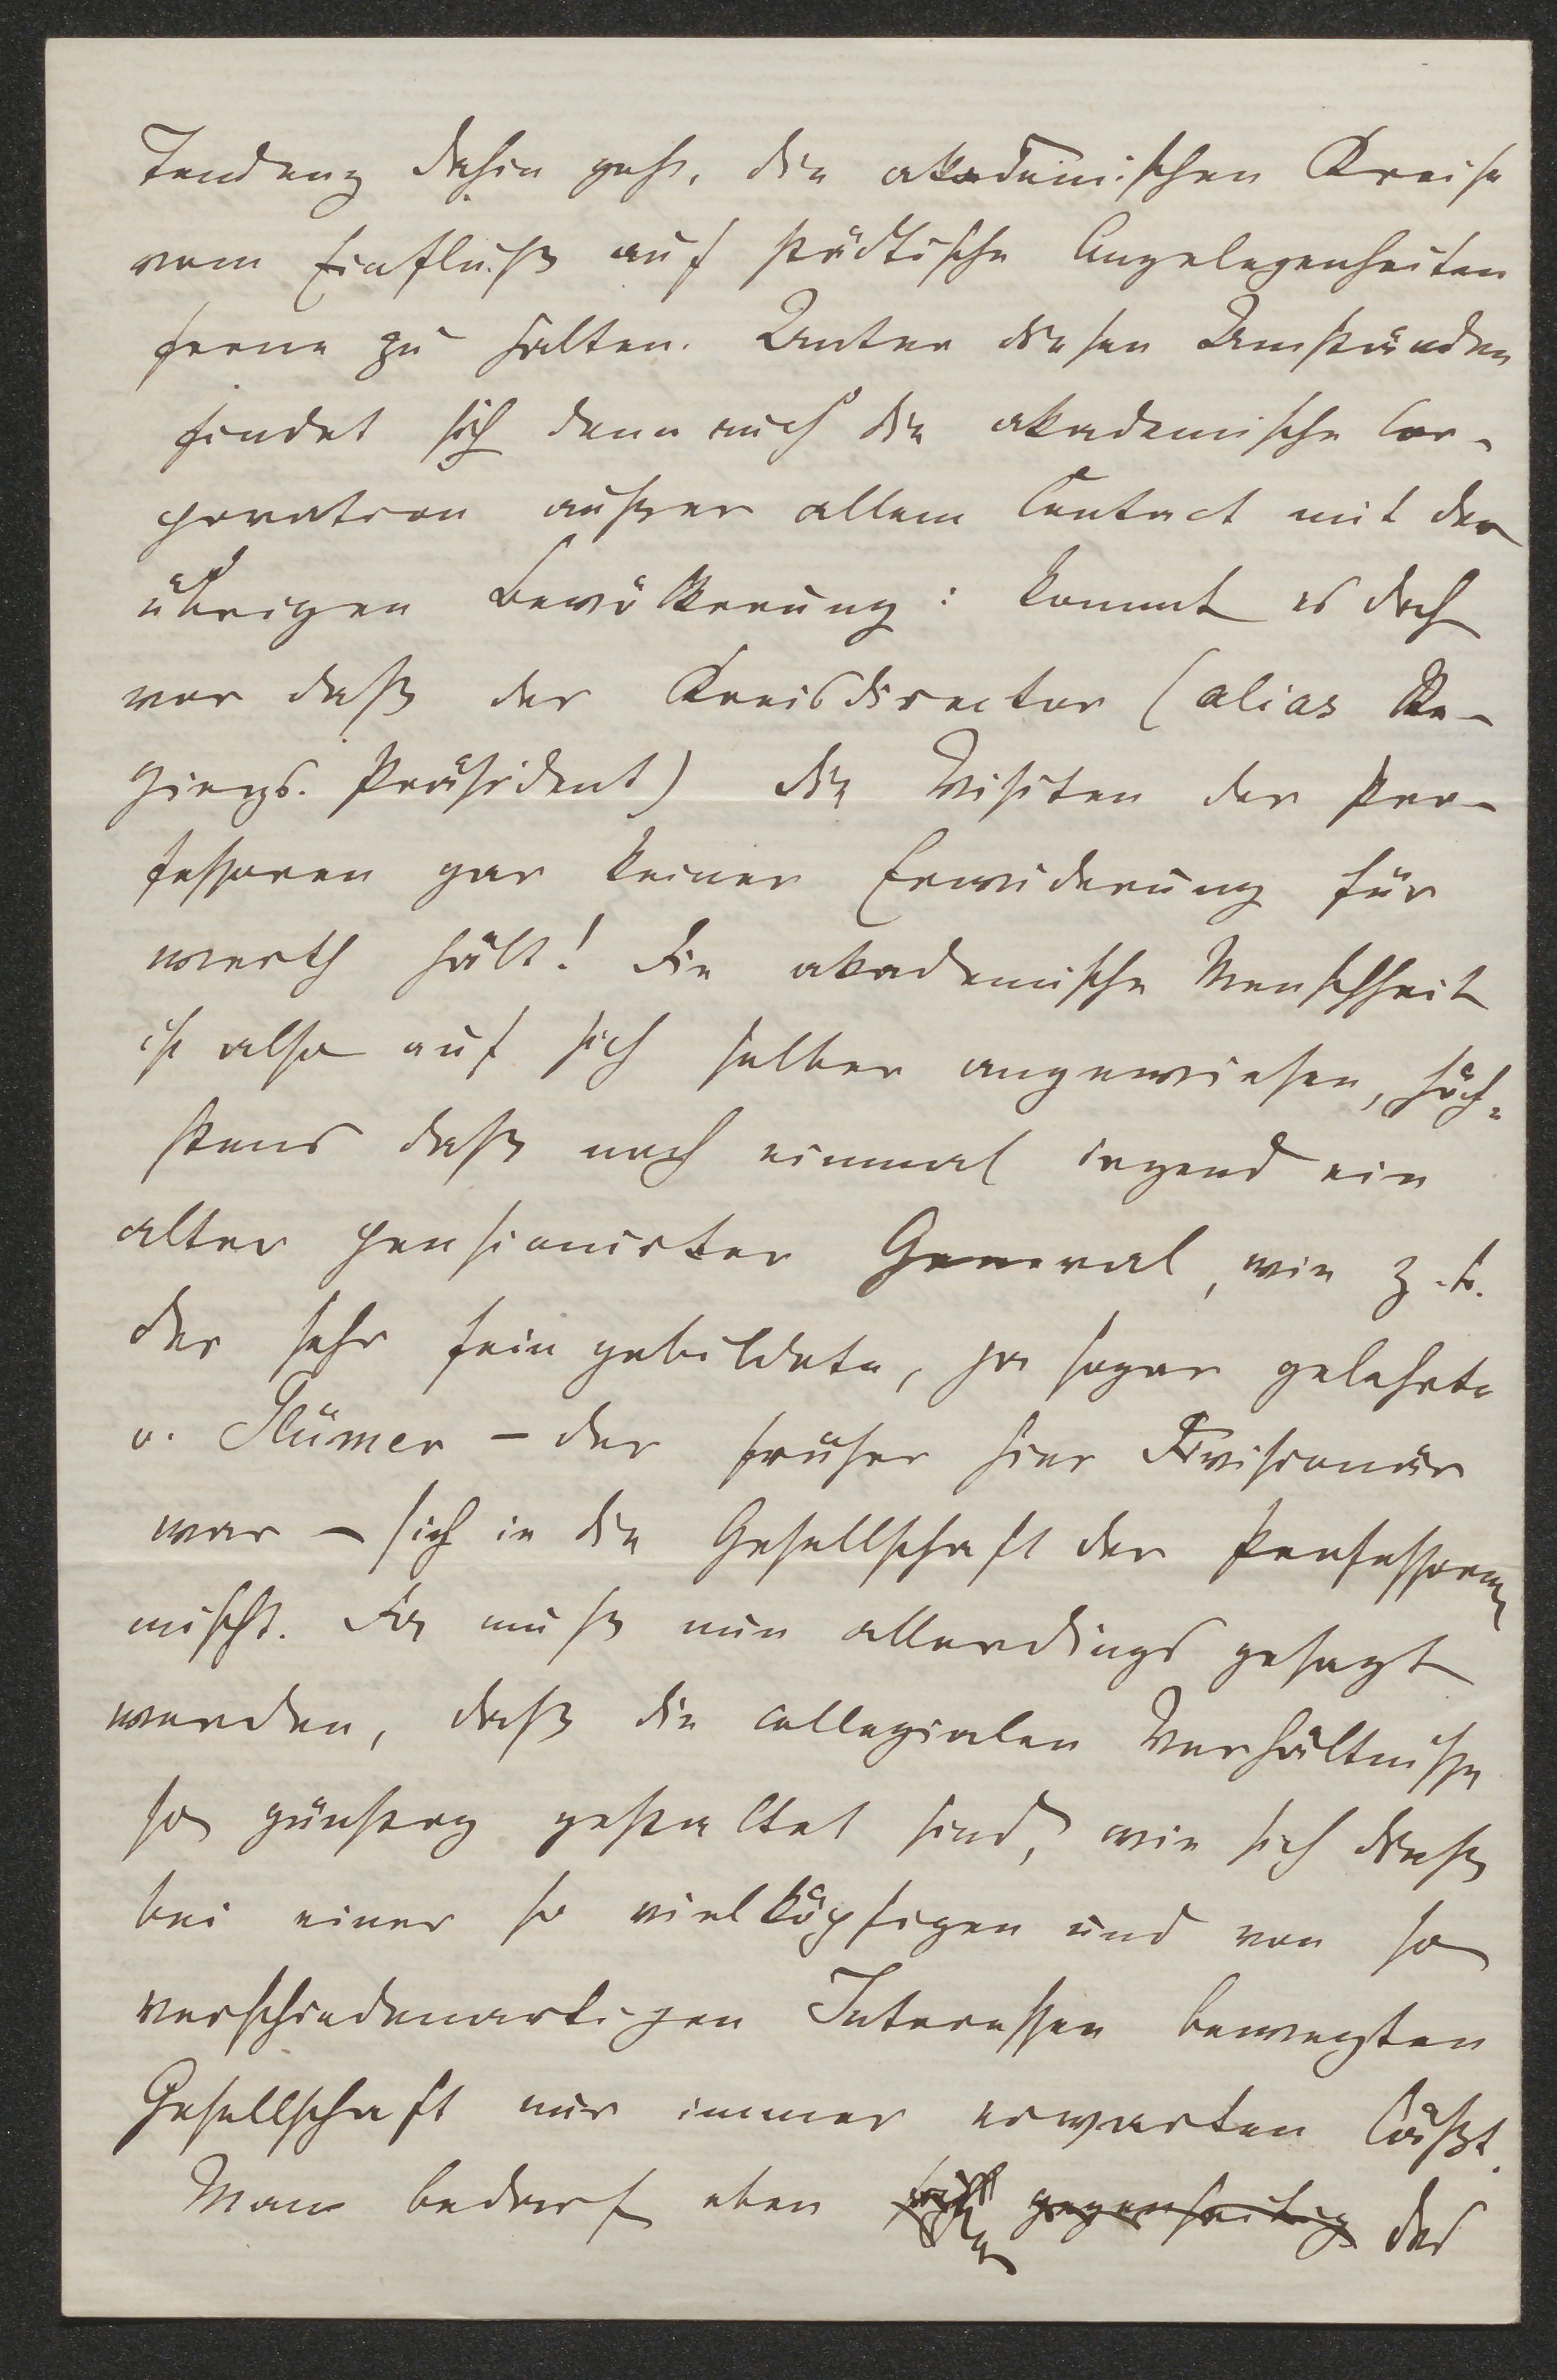 Tendenz dahin geht, die akademischen Kreise
vom Einfluß auf städtische Angelegenheiten
ferne zu halten. Unter diesen Umständen
findet sich denn auch die akademische Cor-
poration außer allem Contact mit der
übrigen Bevölkerung: kommt es doch
vor daß der Kreisdirector (alias Re-
girgs. Präsident) die Visiten der Pro-
fessoren gar keiner Erwiderung für
werth hält! Die akademische Menschheit
ist also auf sich selber angewiesen, höch-
stens daß noch einmal irgend ein
alter pensionirter General, wie z.b.
der sehr fein gebildete, ja sogar gelehrte
v. Glümer – der früher hier Divisionär
war – sich in die Gesellschaft der Professoren
mischt. Da muß nun allerdings gesagt
werden, daß die collegialen Verhältnisse
so günstig gestaltet sind, wie sich dieß
bei einer so vielköpfigen und von so
verschiedenartigen Interessen bewegten
Gesellschaft nur immer erwarten läßt.
Man bedarf eben gegenseitig des